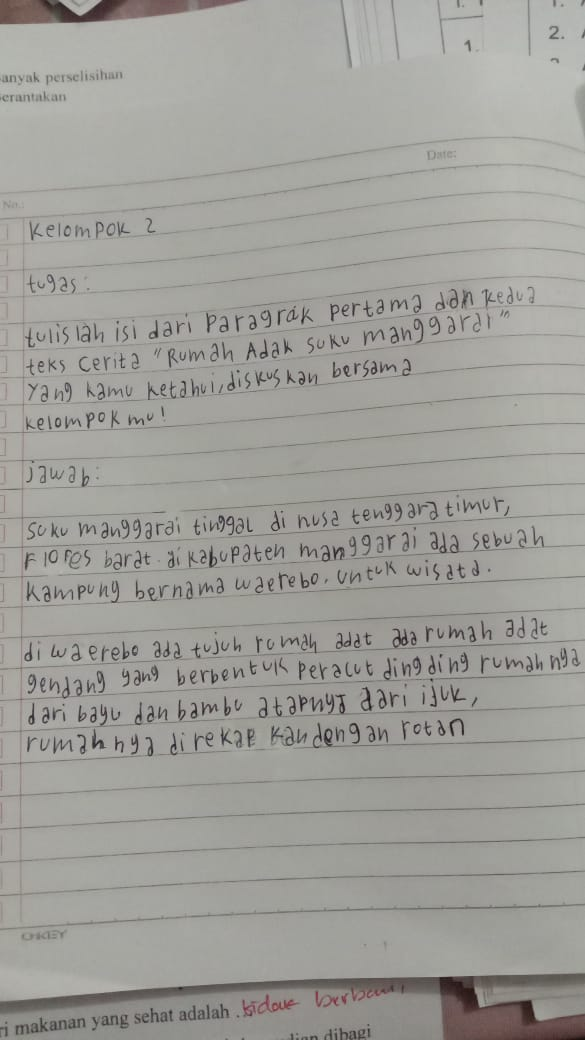 1.
1.
2.
anyak perselisihan
erantakan
Date:
No.:
Kelompok 2
tugas:
tulislah isi dari Paragrak pertama dan kedua
teks cerita "Rumah Adak suku manggarai"
yang kamu ketahui, diskuskan bersama
kelompok mu!
jawab:
suku manggarai tinggal di nusa tenggara timur,
Flores barat. di kabupaten manggarai ada sebuah
kampung bernama waerebo, untuk wisata.
di waerebo ada tujuh rumah adat ada rumah adat
gendang yang berbentuk peracut dingding rumahnya
dari bayu dan bambu atapnya dari ijuk,
rumahnya direkap kan dengan rotan
ri makanan yang sehat adalah .
dibagi